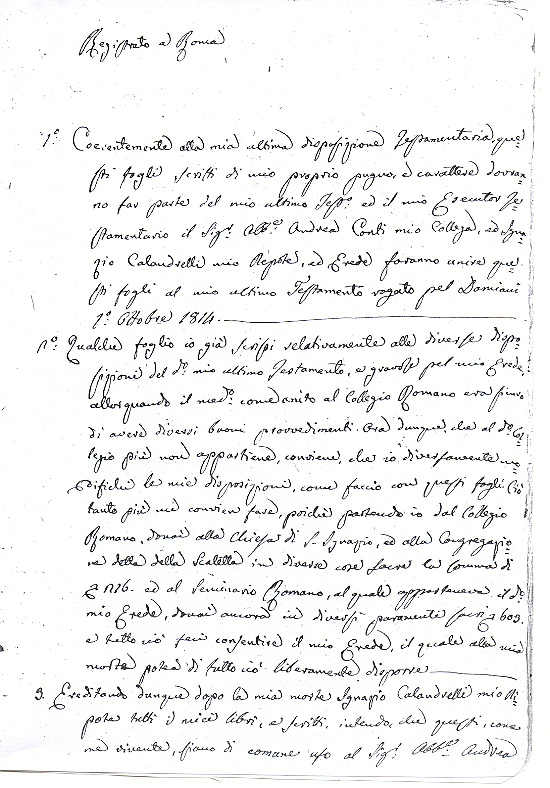 Registrato a Roma
1º. Coerentemente alla mia ultima disposizione Testamentaria, que=
sti fogli scritti di mio proprio pugno, e carattere dovran=
no far parte del mio ultimo Testº. ed il mio Esecutor Te=
stamentario il Sigr. Abbe. Andrea Conti mio Collega, ed Igna=
zio Calandrelli mio Nepote, ed Erede faranno unire que=
sti fogli al mio ultimo Testamento rogato pel Damiani
1º. Ottobre 1814.
Qualche foglio io già scrissi relativamente alle diverse dispo=
sizioni del dº. mio ultimo Testamento, e gravose pel mio Erede,
allorquando il medº. come unito al Collegio Romano era sicuro
di avere diversi buoni provvedimenti. Ora dunque, che al dº. Col=
legio più non appartiene, conviene, che io diversamente mo=
difichi le mie disposizioni, come faccio con questi fogli. Ciò
tanto più mi convien fare, poichè partendo io dal Collegio
Romano, donai alla Chiesa di S. Ignazio, ed alla Congregazio=
ne della della Scaletta in diverse cose sacre la somma di
ed al Seminario Romano, al quale apparteneva il dº.
mio Erede, donai ancora in diversi paramenti sacri 603.
e tutto ciò feci consentire il mio Erede, il quale alla mia
morte potea di tutto ciò liberamente disporre
3. Ereditando dunque dopo la mia morte Ignazio Calandrelli mio Ni=
pote tutti i miei libri, e scritti, intendo, che questi, come
me vivente, siano di comune uso al Sigr. Abbe. Andrea